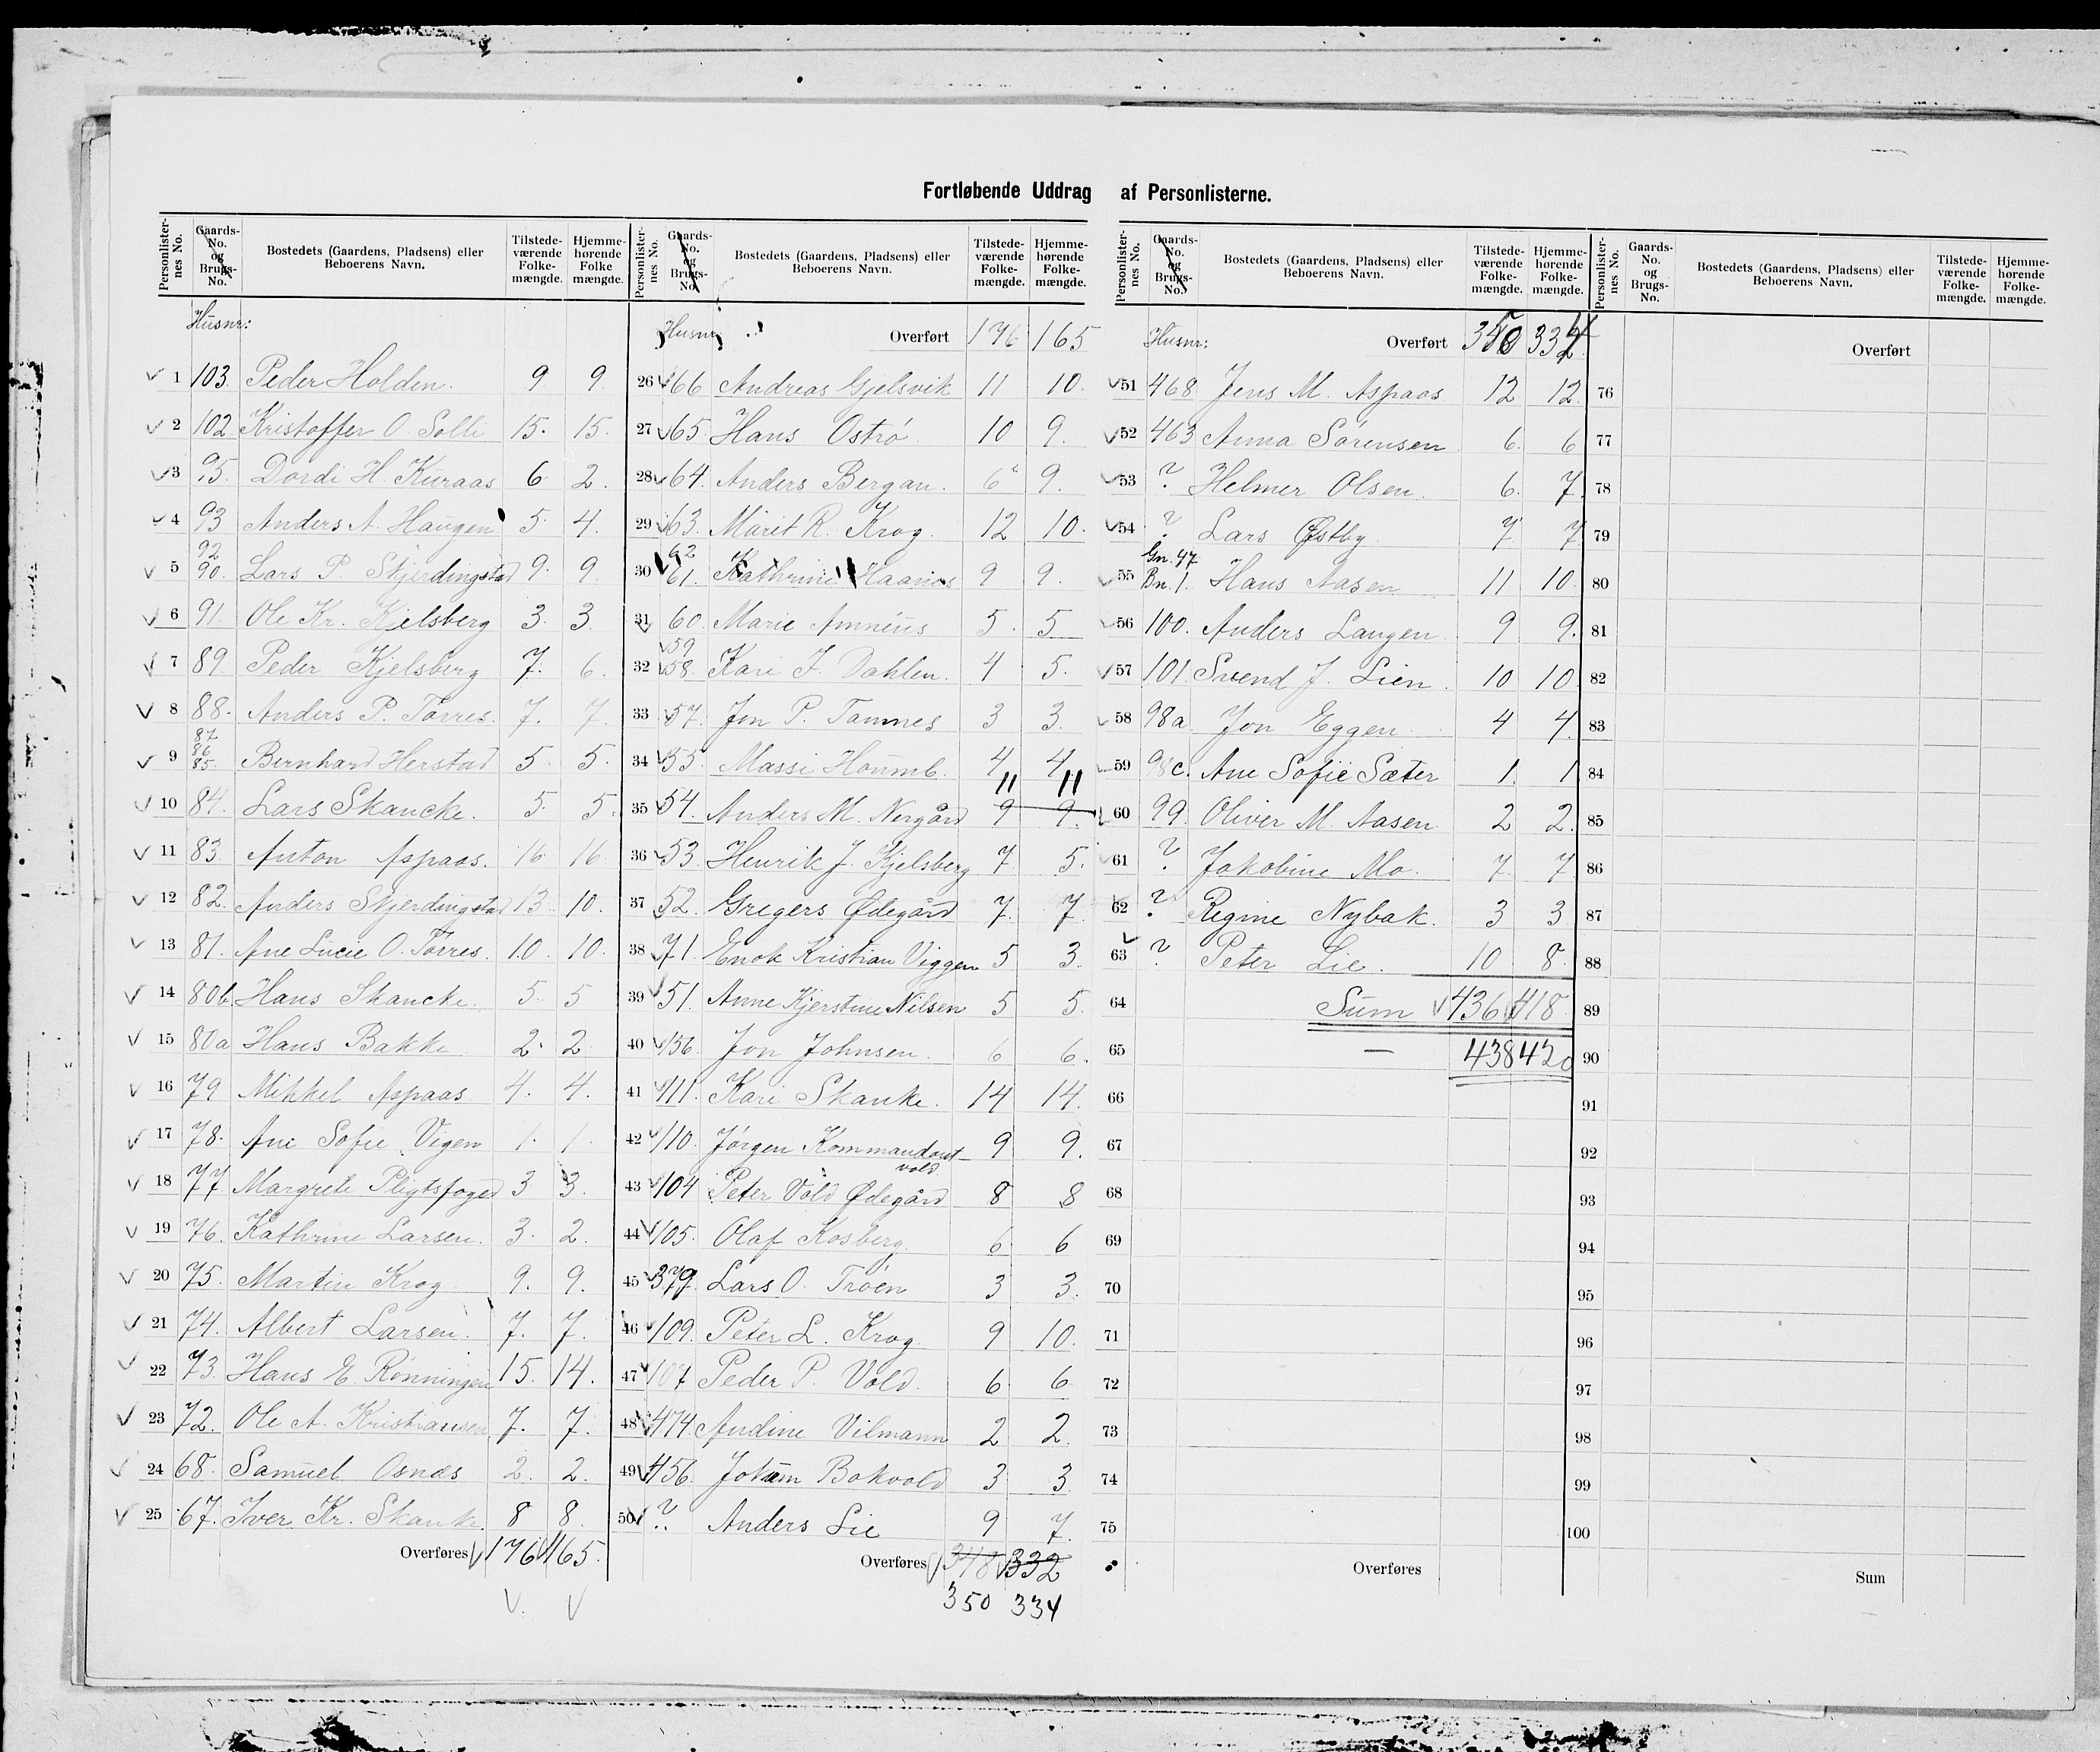 Fortløbende Uddrag af Personlisterne.
Personlisternes No. Gaards-No. og Brugs-No. Bostedets (Gaardens, Pladsens) eller Beboerens Navn. Tilstedeværende Folkemængde. Hjemmehørende Folkemængde.
Husnr:
1 103 Peder Holden. 9 9.
2 102 Kristoffer O. Solli 15. 15.
3 95. Dordi H. Kuraas 6 2.
4 93 Anders A. Haugen 5. 4.
5 92 90. Lars P. Skjerdingstad 9. 9.
6 91. Ole Kr. Kjelsberg 3. 3.
7 89. Peder Kjelsberg 7. 6.
8 88. Anders P. Tørres. 7. 7.
9 87 86 85. Bernhard Herstad 5. 5.
10 84. Lars Skancke. 5. 5.
11 83. Anton Aspaas. 16 16.
12 82. Anders Skjerdingstad 13. 10.
13 81. Ane Lucie O. Tørres. 10. 10.
14 80b. Hans Skancke. 5. 5
15 80a Hans Bakke 2. 2
16 79 Mikkel Aspaas 4. 4.
17 78. Ane Sofie Vigen 1. 1.
18 77 Margrete Pligtsfoged 3 3.
19 76. Kathrine Larsen. 3. 2.
20 75. Martin Krog 9. 9.
21 74. Albert Larsen. 7. 7.
22 73. Hans E. Rønningen 15. 14.
23 72. Ole A. Kristiansen 7. 7.
24 68. Samuel Osnæs 2. 2.
25 67. Iver Kr. Skanke. 8 8.
Overføres 176 165.
Personlisternes No. Gaards-No. og Brugs-No. Bostedets (Gaardens, Pladsens) eller Beboerens Navn. Tilstedeværende Folkemængde. Hjemmehørende Folkemængde.
Husnr. Overført 176 165
26 66 Andreas Gjelsvik 11 10.
27 65 Hans Ostrø 10 9.
28 64. Anders Bergan. 6 9.
29 63. Marit R. Krog. 12 10.
30 62 61. Kathrine Haanæs 9 9.
31 60. Marie Amnéus 5. 5
32 59 58. Kari J. Dahlen. 4 5.
33 57. Jon P. Tamnes 3 3.
34 55. Massi Houmb. 4 4
35 54. Anders M. Nergård 9 9. 11 11
36 53. Henrik J. Kjelsberg 7 5.
37 52. Gregers Ødegård 7. 7.
38 71. Enok Kristian Viggen 5 3.
39 51. Anne Kjerstine Nilsen 5 5.
40 156. Jon Johnsen. 6 6.
41 111. Kari Skanke. 14 14.
42 110. Jørgen Kommandantvold 9 9.
43 104 Peter Vold Ødegård 8 8
44 105. Olaf Kosberg. 6 6
45 379. Lars O. Trøen 3 3.
46 109. Peter L. Krog. 9 10.
47 107 Peder P. Vold. 6 6
48 474. Andine Vilmann 2 2.
49 456. Jotum Bakvold 3 3.
50 ? Anders Lie 9 7.
Overføres 348 332
350 334
Personlisternes No. Gaards-No. og Brugs-No. Bostedets (Gaardens, Pladsens) eller Beboerens Navn. Tilstedeværende Folkemængde. Hjemmehørende Folkemængde.
Husnr: Overført 350 334
51 468 Jens M. Aspaas 12 12.
52 463 Anna Sørensen 6. 6
53 ? Helmer Olsen. 6. 7.
54 ? Lars Østby. 7. 7
55 Gn. 47 Bn. 1. Hans Aasen 11 10.
56 100. Anders Langen. 9 9.
57 101 Svend J. Lien. 10 10
58 98a Jon Eggen 4 4.
59 98c. Ane Sofie Sæter 1. 1
60 99. Oliver M. Aasen. 2 2.
61 ? Jakobine Mo. 7. 7
62 ? Regine Nybak. 3 3
63 ? Peter Lie. 10 8.
64 Sum 436 418
65 — 438 420
66
67
68
69
70
71
72
73
74
75
Overføres
Personlisternes No. Gaards-No. og Brugs-No. Bostedets (Gaardens, Pladsens) eller Beboerens Navn. Tilstedeværende Folkemængde. Hjemmehørende Folkemængde.
Overført
76
77
78
79
80
81
82
83
84
85
86
87
88
89
90
91
92
93
94
95
96
97
98
99
100
Sum